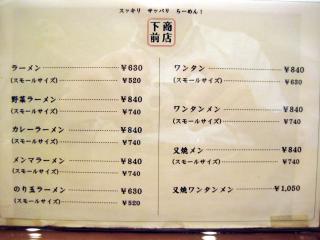 スッキリ サッパリ らーめん！
商店
下前
ラーメン ¥630
(スモールサイズ) ¥520
野菜ラーメン ¥840
(スモールサイズ) ¥740
カレーラーメン ¥840
(スモールサイズ) ¥740
メンマラーメン ¥840
(スモールサイズ) ¥740
のり玉ラーメン ¥630
(スモールサイズ) ¥520
ワンタン ¥840
(スモールサイズ) ¥740
ワンタンメン ¥840
(スモールサイズ) ¥740
叉焼メン ¥840
(スモールサイズ) ¥740
叉焼ワンタンメン ¥1,050